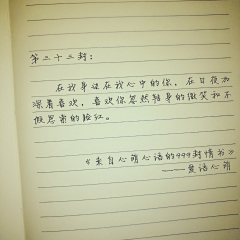 第二十二封:
在我身边在我心中的你，在日夜加
深着喜欢，喜欢你忽然转身的微笑和不
假思索的脸红。
《来自心萌心语的999封情书》
——爱语心萌